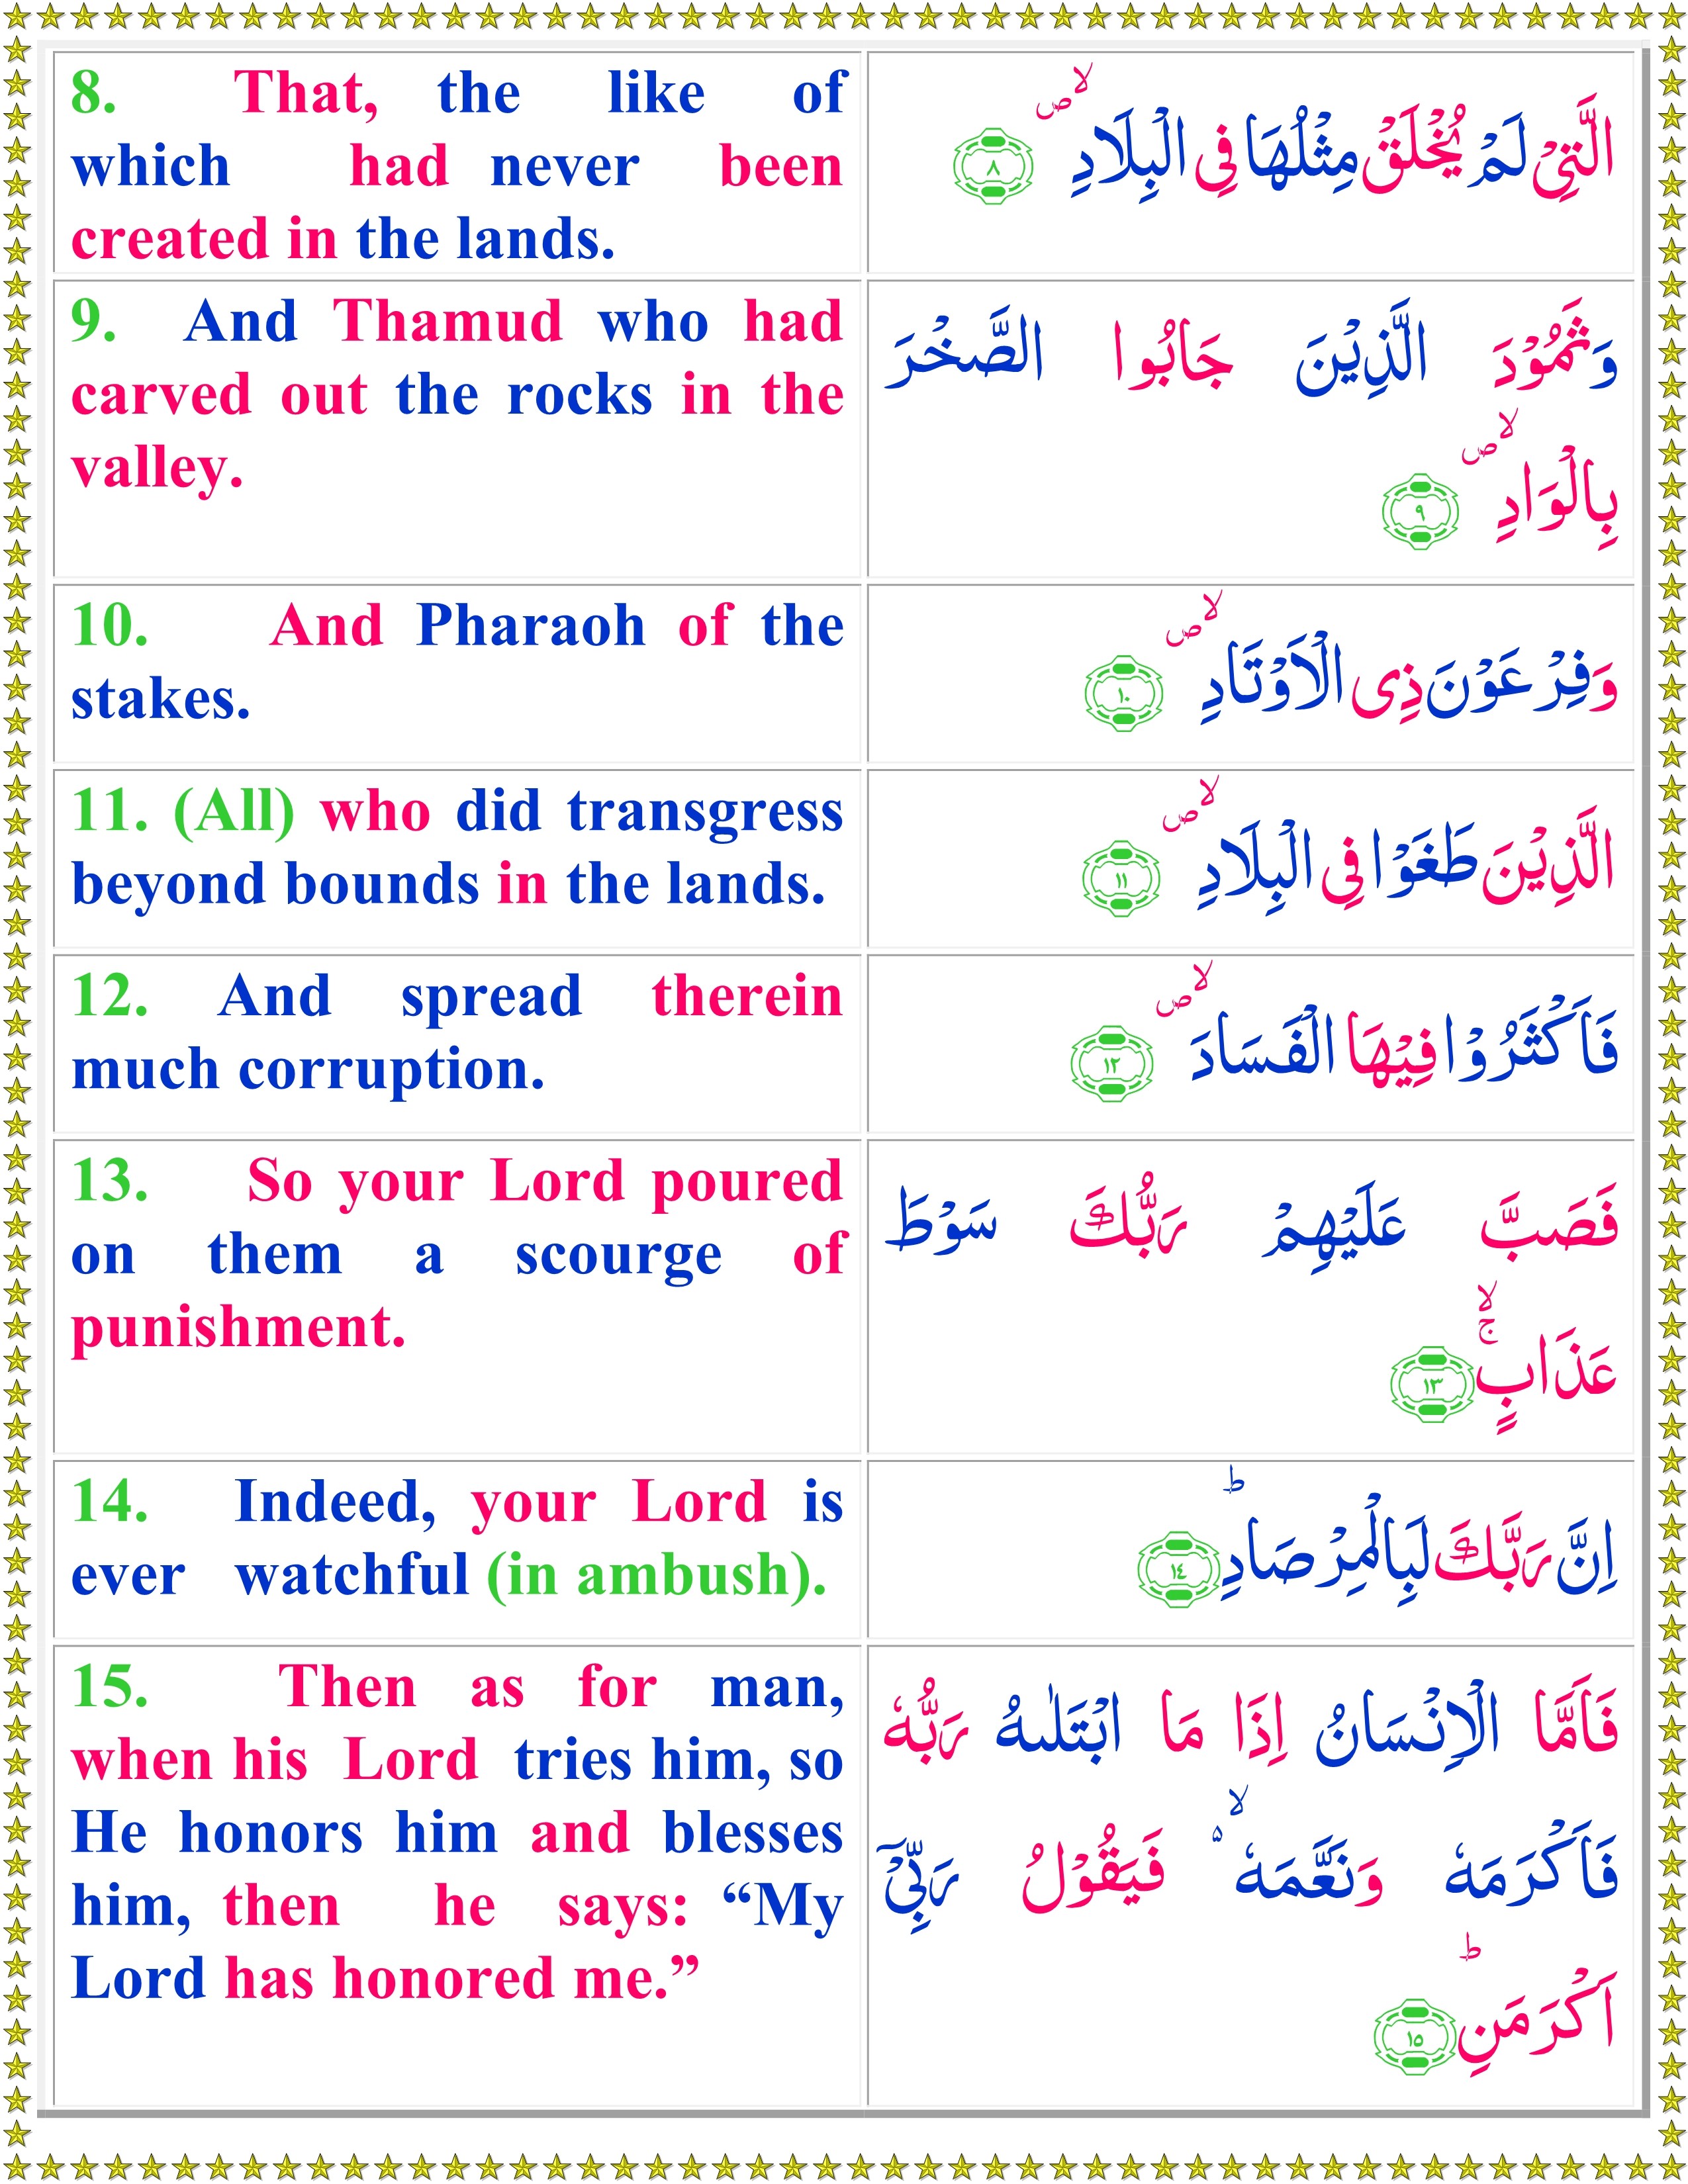 8. That, the like of
which had never been
created in the lands.
الَّتِىْ لَمْ يُخْلَقْ مِثْلُهَا فِى الْبِلَادِ ۙ ۪ ‏﴿۸﴾
9. And Thamud who had
carved out the rocks in the
valley.
وَثَمُوْدَ الَّذِيْنَ جَابُوا الصَّخْرَ
بِالْوَادِ ۙ ۪ ‏﴿۹﴾
10. And Pharaoh of the
stakes.
وَفِرْعَوْنَ ذِى الْاَوْتَادِ ۙ ۪ ‏﴿۱۰﴾
11. (All) who did transgress
beyond bounds in the lands.
الَّذِيْنَ طَغَوْا فِى الْبِلَادِ ۙ ۪ ‏﴿۱۱﴾
12. And spread therein
much corruption.
فَاَكْثَرُوْا فِيْهَا الْفَسَادَ ۙ ۪ ‏﴿۱۲﴾
13. So your Lord poured
on them a scourge of
punishment.
فَصَبَّ عَلَيْهِمْ رَبُّكَ سَوْطَ
عَذَابٍ ۙۚ ‏﴿۱۳﴾
14. Indeed, your Lord is
ever watchful (in ambush).
اِنَّ رَبَّكَ لَبِالْمِرْصَادِؕ ‏﴿۱۴﴾
15. Then as for man,
when his Lord tries him, so
He honors him and blesses
him, then he says: “My
Lord has honored me.”
فَاَمَّا الْاِنْسَانُ اِذَا مَا ابْتَلٰٮهُ رَبُّهٗ
فَاَكْرَمَهٗ وَنَعَّمَهٗ ۙ۬ فَيَقُوْلُ رَبِّىْۤ
اَكْرَمَنِؕ ‏﴿۱۵﴾